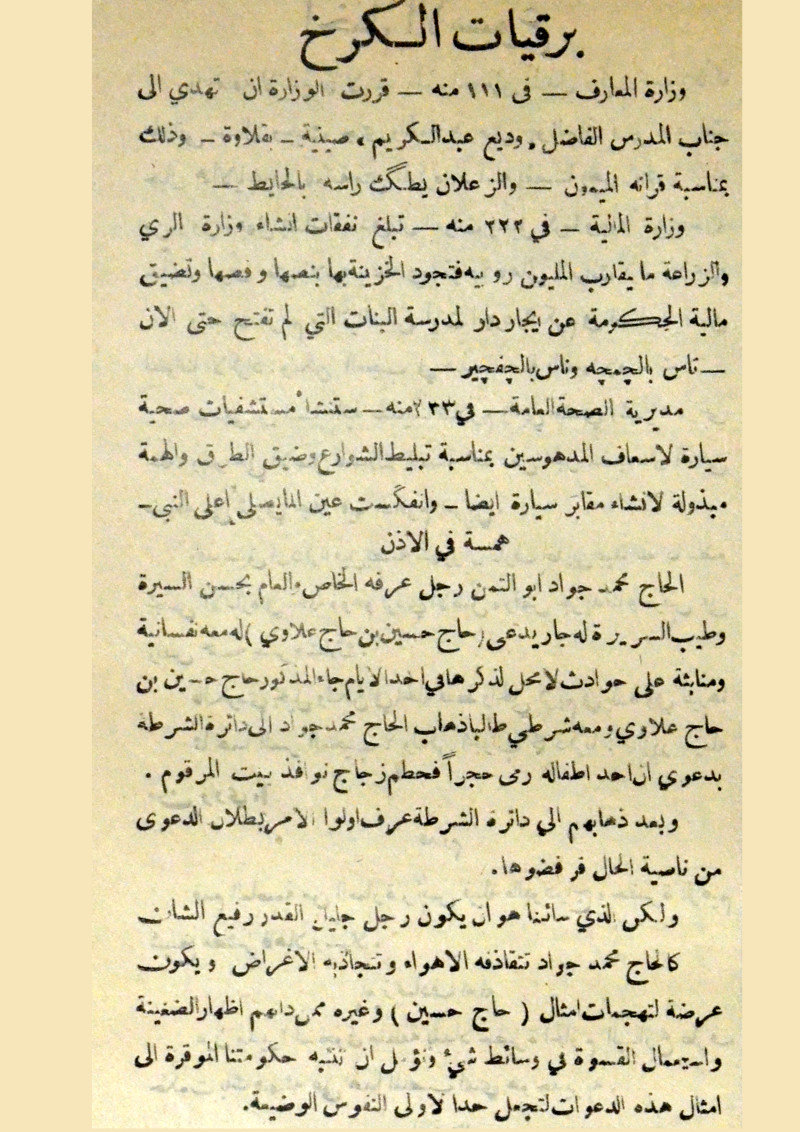 برقيات الكرخ
وزارة المعارف — في ١١١ منه — قررت الوزارة ان تهدي الى
جناب المدرس الفاضل، وديع عبدالكريم، صينية ـ بقلاوة ـ وذلك
بمناسبة قرانه الميمون — والزعلان يطگگ راسه بالحايط —
وزارة المالية — في ٢٢٢ منه — تبلغ نفقات انشاء وزارة الري
والزراعة ما يقارب المليون روبيه فتجود الخزينة بها بنصها وفصها وتضيق
مالية الحكومة عن ايجار دار لمدرسة البنات التي لم تفتح حتى الان
— ناس بالچمچه وناس بالچفچير —
مديرية الصحة العامة — في ٢٣٣ منه — ستنشأ مستشفيات صحية
سيارة لاسعاف المدهوسين بمناسبة تبليط الشوارع وضيق الطرق والهمة
مبذولة لانشاء مقابر سيارة ايضا — وانفگست عين المايصلي اعلى النبي —
همسة في الاذن
الحاج محمد جواد ابو التمن رجل عرفه الخاص والعام بحسن السيرة
وطيب السريرة له جار يدعى (حاج حسين بن حاج علاوي) له معه نفسانية
ومنابثة على حوادث لا محل لذكرها في احد الايام جاء المذكور حاج حسين بن
حاج علاوي ومعه شرطي طالبا ذهاب الحاج محمد جواد الى دائرة الشرطة
بدعوي ان احد اطفاله رمى حجراً فحطم زجاج نوافذ بيت المرقوم .
وبعد ذهابهم الي دائرة الشرطة عرف اولوا الامر بطلان الدعوى
من ناصية الحال فرفضوها.
ولكن الذي سائنا هو ان يكون رجل جليل القدر رفيع الشان
كالحاج محمد جواد تتقاذفه الاهواء وتتجاذبه الاغراض ويكون
عرضة لتهجمات امثال ( حاج حسين ) وغيره ممن دابهم اظهار الضغينة
واستعمال القسوة في وسائط شيء ونؤمل ان تنتبه حكومتنا الموقرة الى
امثال هذه الدعوات لتجعل حدا لاولى النفوس الوضيعة.